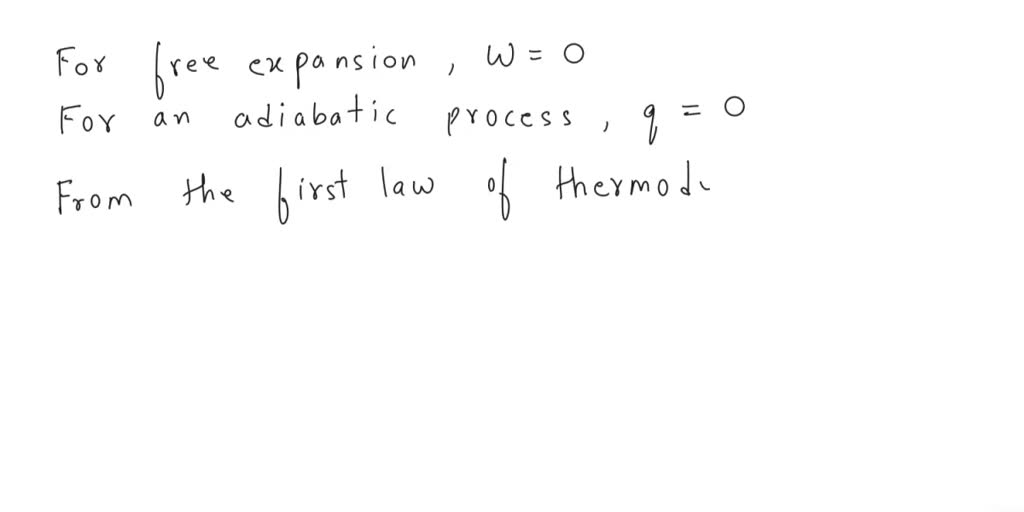 For free expansion, W = 0
For an adiabatic process, q = 0
From the first law of thermod